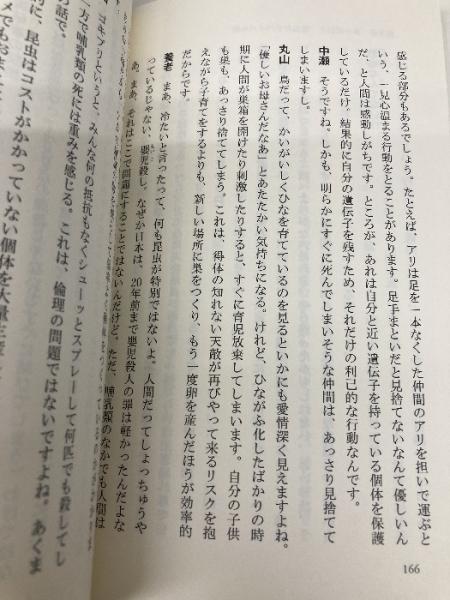 感じる部分もあるでしょう。たとえば、アリは足を一本なくした仲間のアリを担いで運ぶと
いう、一見心温まる行動をとることがあります。足手まといだと見捨てないなんて優しいん
だ、と人間は感動しがちです。ところが、あれは自分と近い遺伝子を持っている個体を保護
しているだけ。結果的に自分の遺伝子を残すため、それだけの利己的な行動なんです。
中瀬 そうですね。しかも、明らかにすぐに死んでしまいそうな仲間は、あっさり見捨てて
しまいますし。
丸山 鳥だって、かいがいしくひなを育てているのを見るといかにも愛情深く見えますよね。
「優しいお母さんだなあ」とあたたかい気持ちになる。けれど、ひながふ化したばかりの時
期に人間が巣箱を開けたり刺激したりすると、すぐに育児放棄してしまいます。自分の子供
も巣も、あっさり捨ててしまう。これは、得体の知れない天敵が再びやって来るリスクを抱
えながら子育てをするよりも、新しい場所に巣をつくり、もう一度卵を産んだほうが効率的
だからです。
養老 まあ、冷たいと言ったって、何も昆虫が特別ではないよ。人間だってしょっちゅうや
っているじゃない、嬰児殺し。なぜか日本は、20年前まで嬰児殺人の罪は軽かったんだよな
あ。まあ、それはここで問題にすることではないんだけど。ただ、哺乳類のなかでも人間は
ゴキブリというと、みんな何の抵抗もなくシューッとスプレーして何匹でも殺してし
一方で哺乳類の死には重みを感じる。これは、倫理の問題ではないですよね。あくま
の話で。
的に、昆虫はコストがかかっていない個体を大量
166